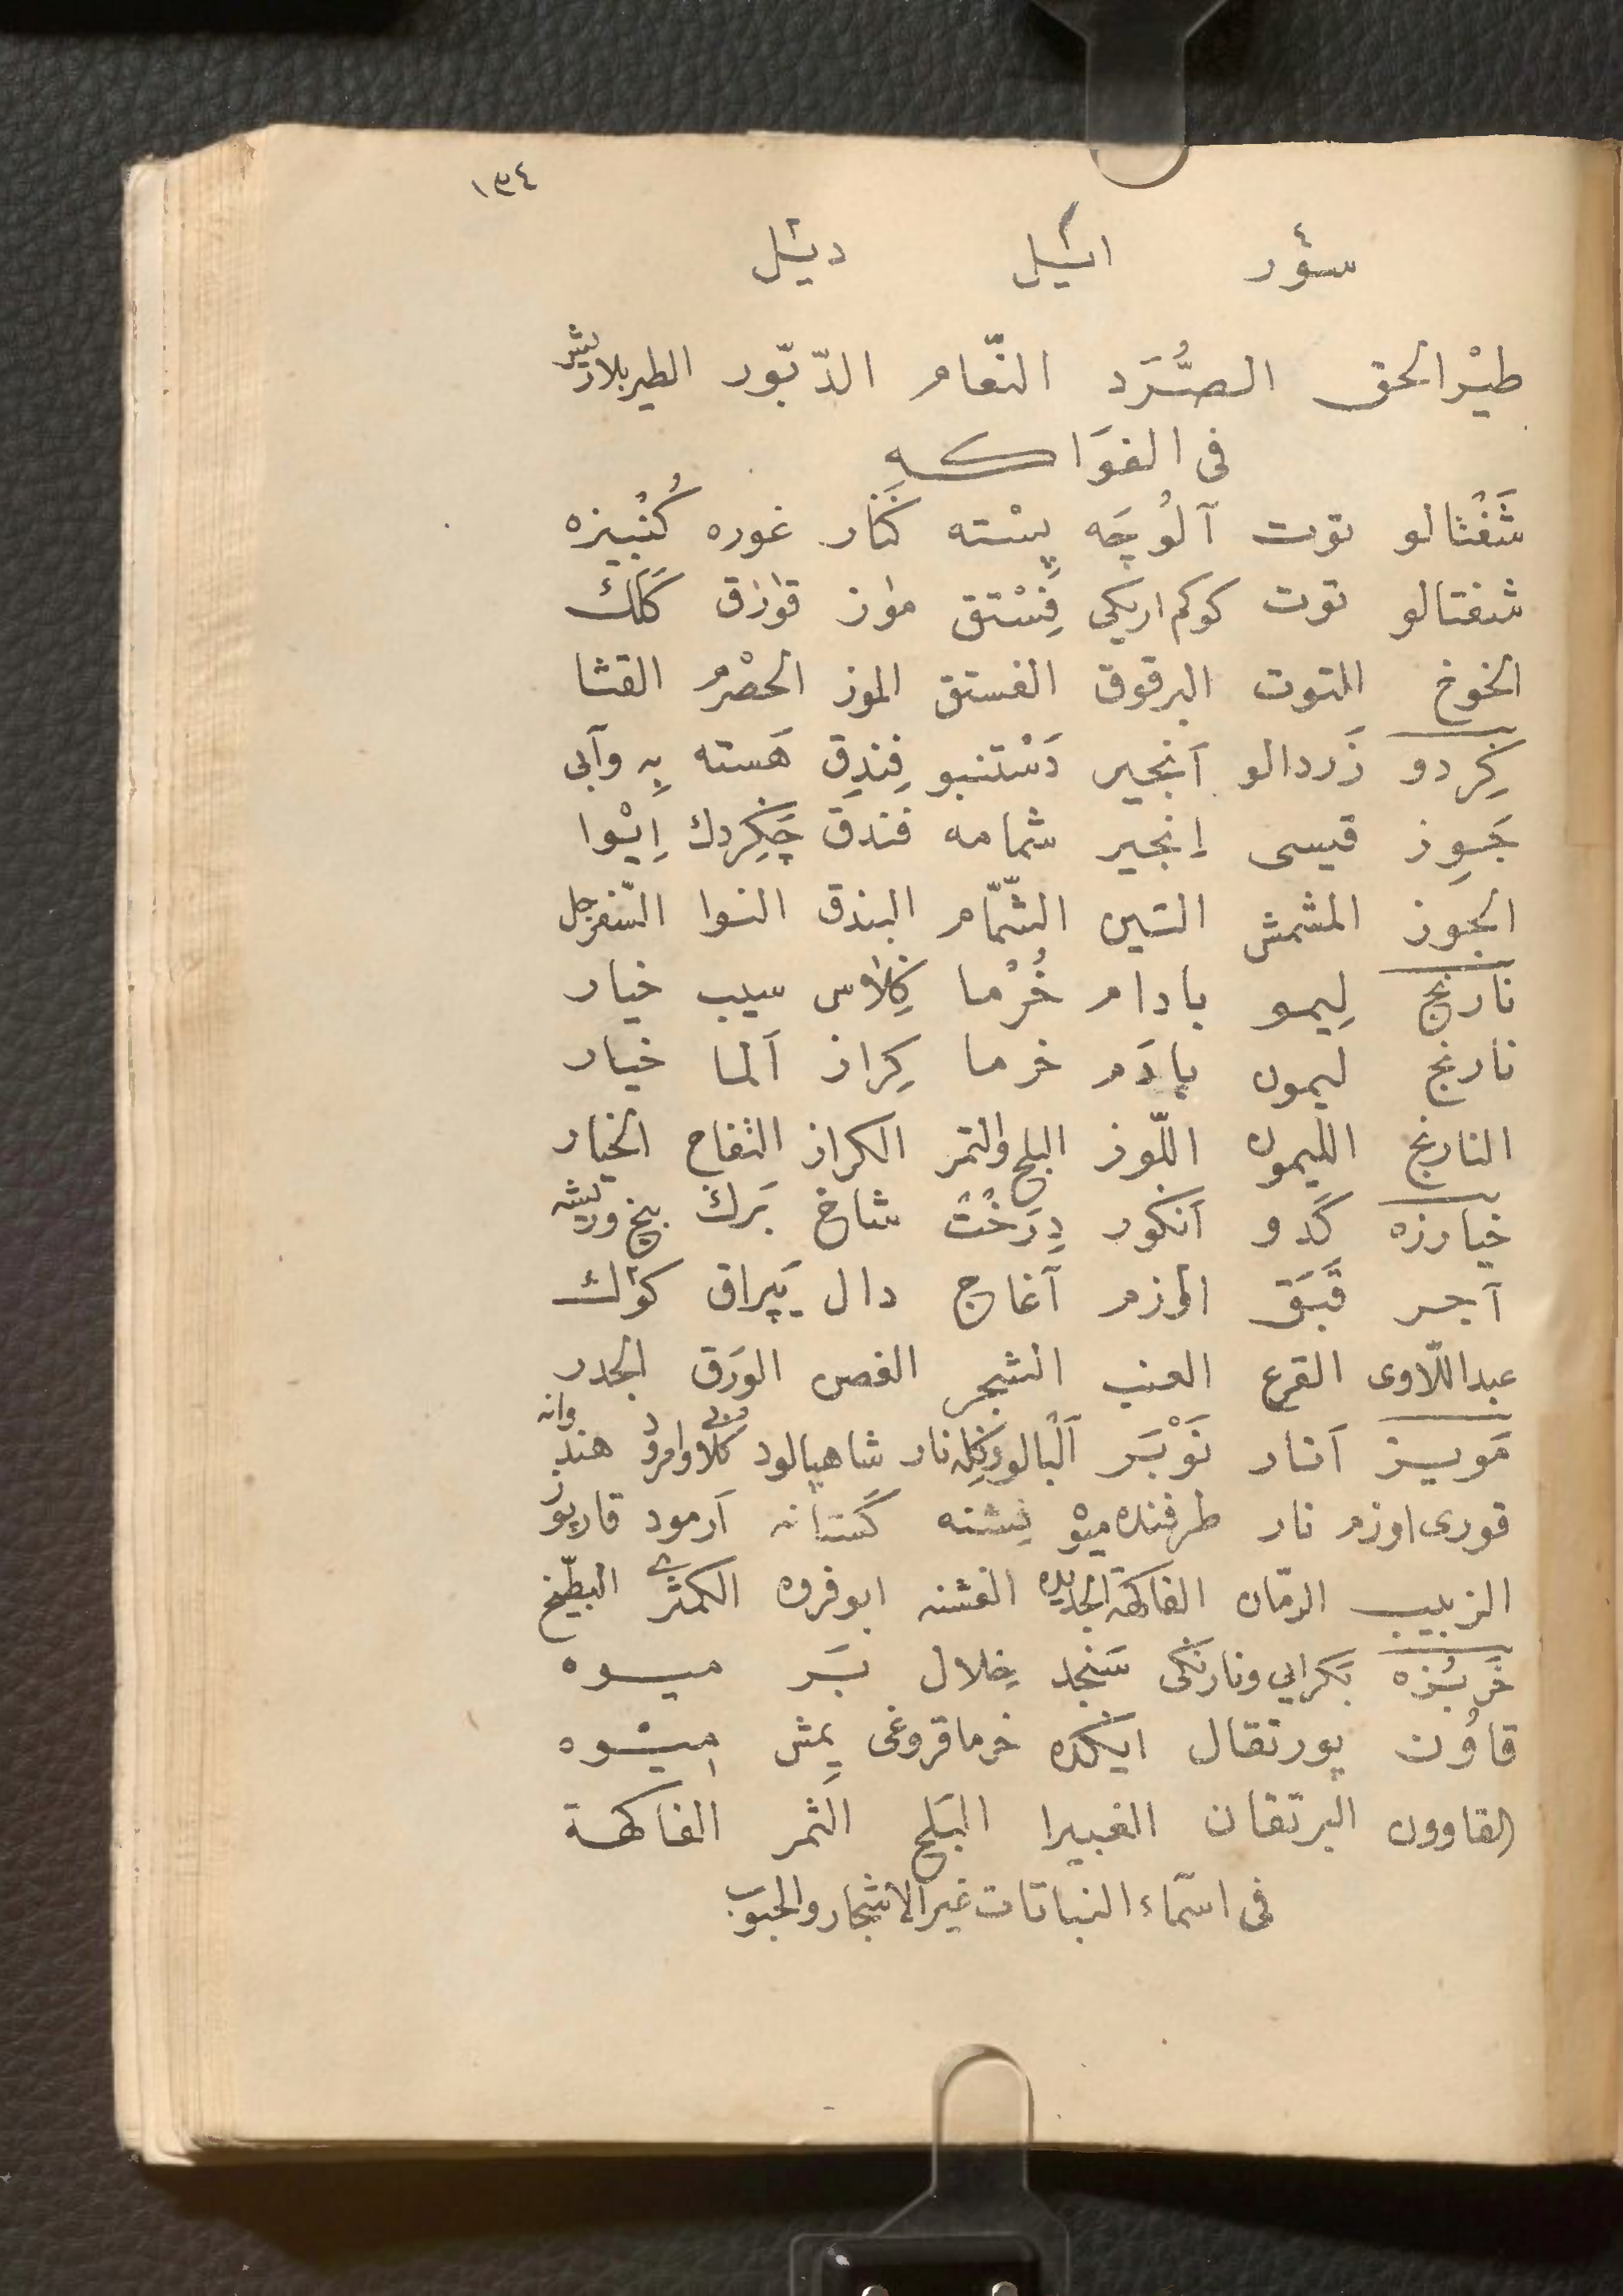 ١٣٤
سؤر ائيل ديئل
طيْر الحق الصُّرَد النّعام الدّبّور الطير بلا ريش
فى الفوَاكه
شَفْتالو توت آلُوچَه پِسْته كَنار غوره كُنْبيزه
شفتالو توت كوكم اريكى فِسْتق مواز قوراق كَلَك
الخوخ التوت البرقوق الفستق الموز الحصْرم القثا
كِردو زَردالو اَنجير دَسْتنبو فِندِق هَسته بِه وآبى
جَوِز قيسى اِنجير شمامه فندق چَكِردك اِيْوا
الجوز المشمش التين الشّمّام البندق النوا السّفرجل
نارنج لِيمو بادام خُرْما كِلاس سيب خيار
نارنج ليمون بادَم خرما كِراز اَلما خيار
النارنج الليمون اللّوز البلح والتمر الكراز التفاح الخيار
خيارزه كَدو اَنكور دِرَخْت شاخ بَرك بيخ وريشه
آجر قَبَق اوزم آغاج دال يَپراق كوك
عبد اللّاوى القرع العنب الشجر الغصن الورَق الجدر
مَويز اَنار نَوْبَر اَلبالو وكِله نار شاهبالود كلاوامرود هندوانه
قورى اوزم نار طرفنده ميو فِشنه كَستانه اَرمود قارپوز
الزبيب الرمّان الفاكهة الجديده الفشنه ابو فروه الكمثرى البطّيخ
خَربُزه بَكرايى ونارنكى سَنجد خِلال بَر ميوه
قاوُن پورتقال ايكده خرما قروغى يِمش ميْوه
القاوون البرتقان الغبيرا البَلح الثَمر الفاكهة
فى اسمَاء النباتات غير الاشجار والحبوب